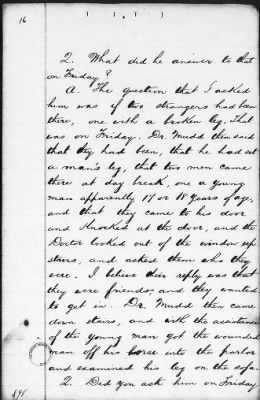 16
Q. What did he answer to that
on Friday?
A. The question that I asked
him was if two strangers had been
there, one with a broken leg. That
was on Friday. Dr. Mudd then said
that they had been, that he had set
a man's leg, that two men came
there at day break, one a young
man apparently 17 or 18 years of age,
and that they came to his door
and Knocked at the door, and the
Doctor looked out of the window up
stairs, and asked them who they
were. I believe their reply was that
they were friends, and they wanted
to get in. Dr. Mudd then came
down stairs, and with the assistance
of the young man got the wounded
man off his horse into the parlor
and examined his leg on the sofa.
Q. Did you ask him on Friday